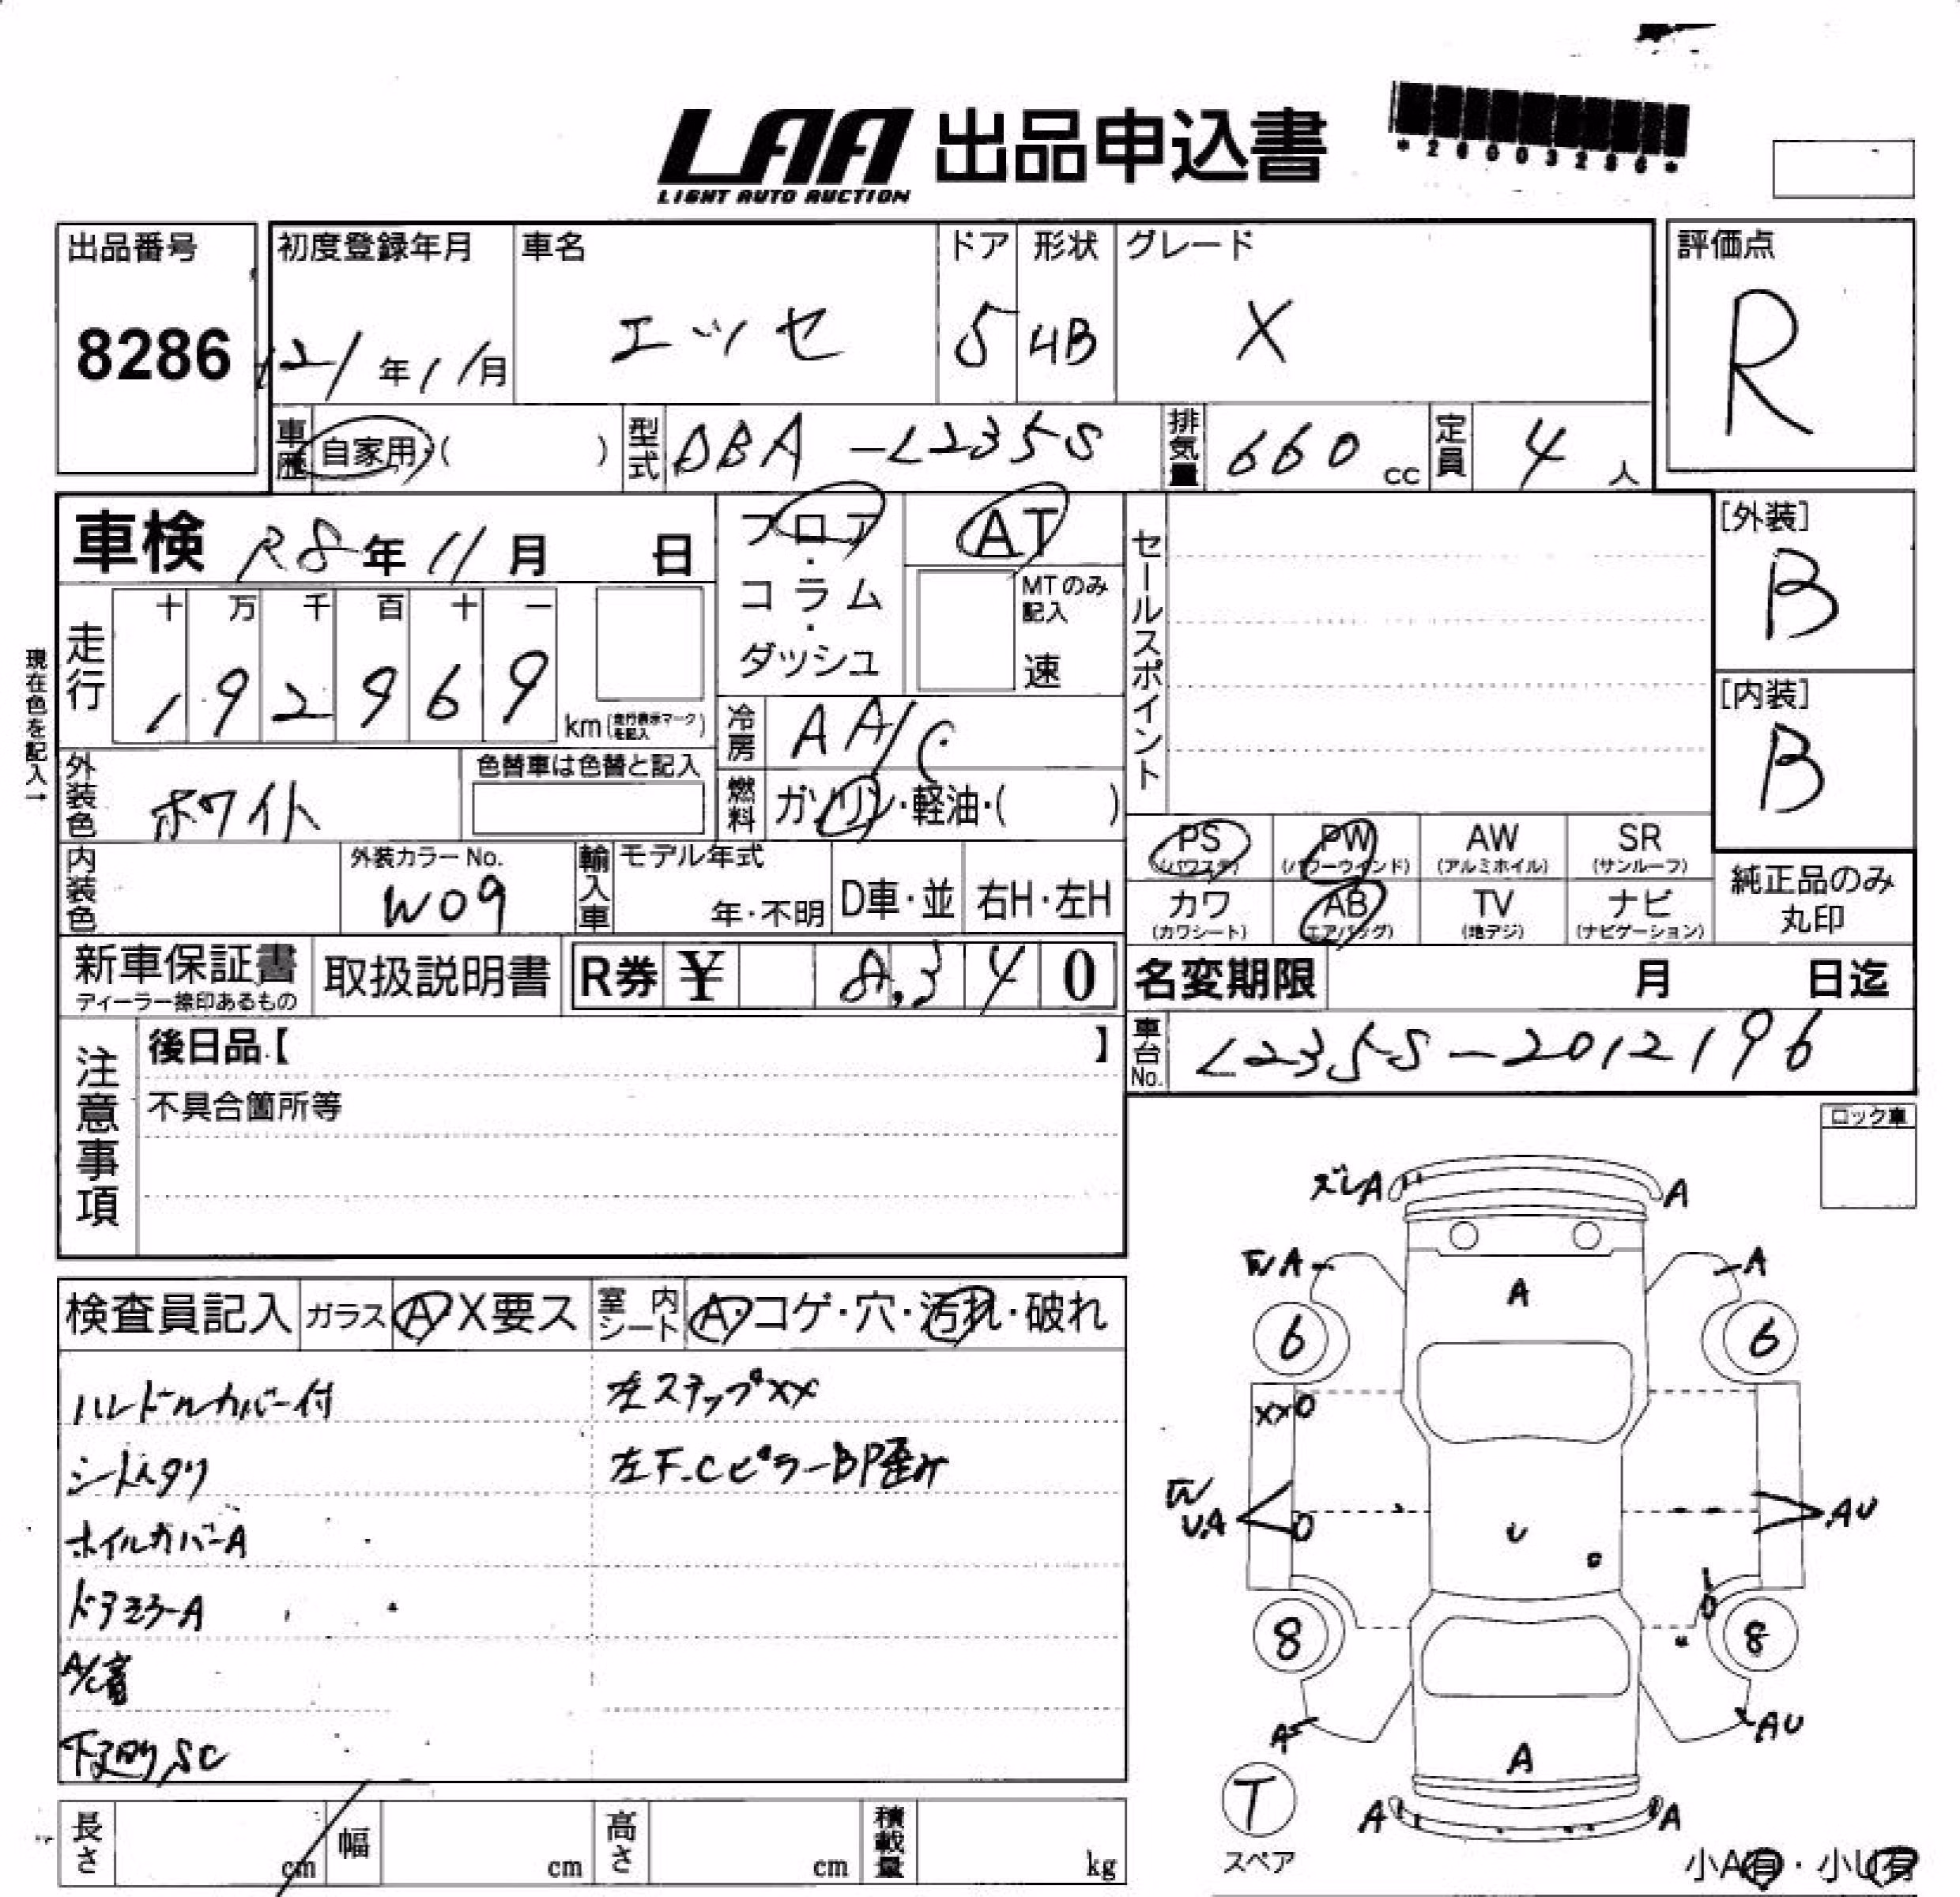 LAA 出品申込書
LIGHT AUTO AUCTION
*26003286*
出品番号
8286
初度登録年月
21年11月
車名
エッセ
ドア
5
形状
HB
グレード
X
評価点
R
車歴
自家用・( )
型式
DBA-L235S
排気量
660 cc
定員
4 人
車検 R8年11月 日
フロア・コラム・ダッシュ
AT
MTのみ記入
速
セールスポイント
[外装]
B
[内装]
B
現在色を記入→
走行
十 万 千 百 十 一
1 9 2 9 6 9
km(走行表示マークを記入)
冷房
AA/C
燃料
ガソリン・軽油・( )
外装色
ホワイト
色替車は色替と記入
内装色
外装カラーNo.
W09
輸入車
モデル年式
年・不明
D車・並
右H・左H
PS
(パワステ)
PW
(パワーウインド)
AW
(アルミホイル)
SR
(サンルーフ)
カワ
(カワシート)
AB
(エアバッグ)
TV
(地デジ)
ナビ
(ナビゲーション)
純正品のみ
丸印
新車保証書
ディーラー捺印あるもの
取扱説明書
R券 ¥ 8,340
名変期限 月 日迄
車台No.
L235S-2012196
注意事項
後日品【 】
不具合箇所等
ロック車
検査員記入
ガラス
A・X要ス
室内シート
A・コゲ・穴・汚れ・破れ
ハンドルカバー付
シートヘタリ
ホイルカバーA
ドアミラーA
A/C音
下廻りSC
左ステップXX
左F.CピラーBP歪み
ズレA
A
A
A
A
6
6
XX0
UA
0
U
AU
8
8
A
AU
A
T
スペア
A
A
小A有・小U有
長さ
cm
幅
cm
高さ
cm
積載量
kg